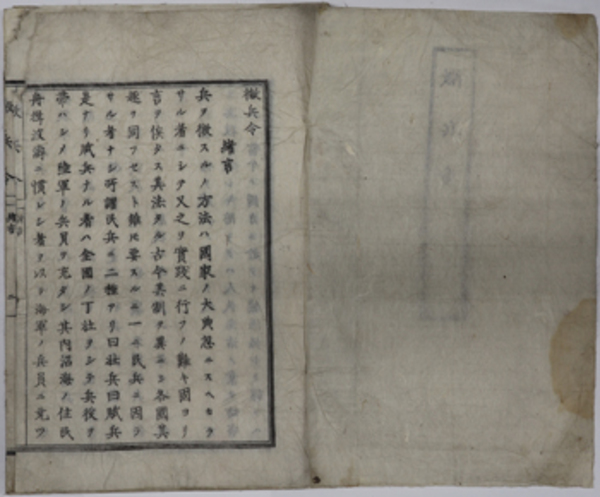 徴兵令
緒言
兵ヲ徴スルノ方法ハ國家ノ大典忽ニスヘカラ
サル者ニシテ又之ヲ實践ニ行フノ難キ固ヨリ
言ヲ俟タス其法タル古今其制ヲ異ニシ各國其
趣ヲ同フセスト雖モ要スルニ一ニ民兵ニ因ラ
サル者ナシ所謂民兵ニ二種アリ曰壮兵曰賦兵
是ナリ賦兵ナル者ハ全國ノ丁壮ヲシテ兵役ヲ
帯ハシメ陸軍ノ兵員ヲ充タシ其内沿海ノ住民
舟楫波濤ニ慣レシ者ヲ以テ海軍ノ兵員ニ充ツ
徴兵令
緒言